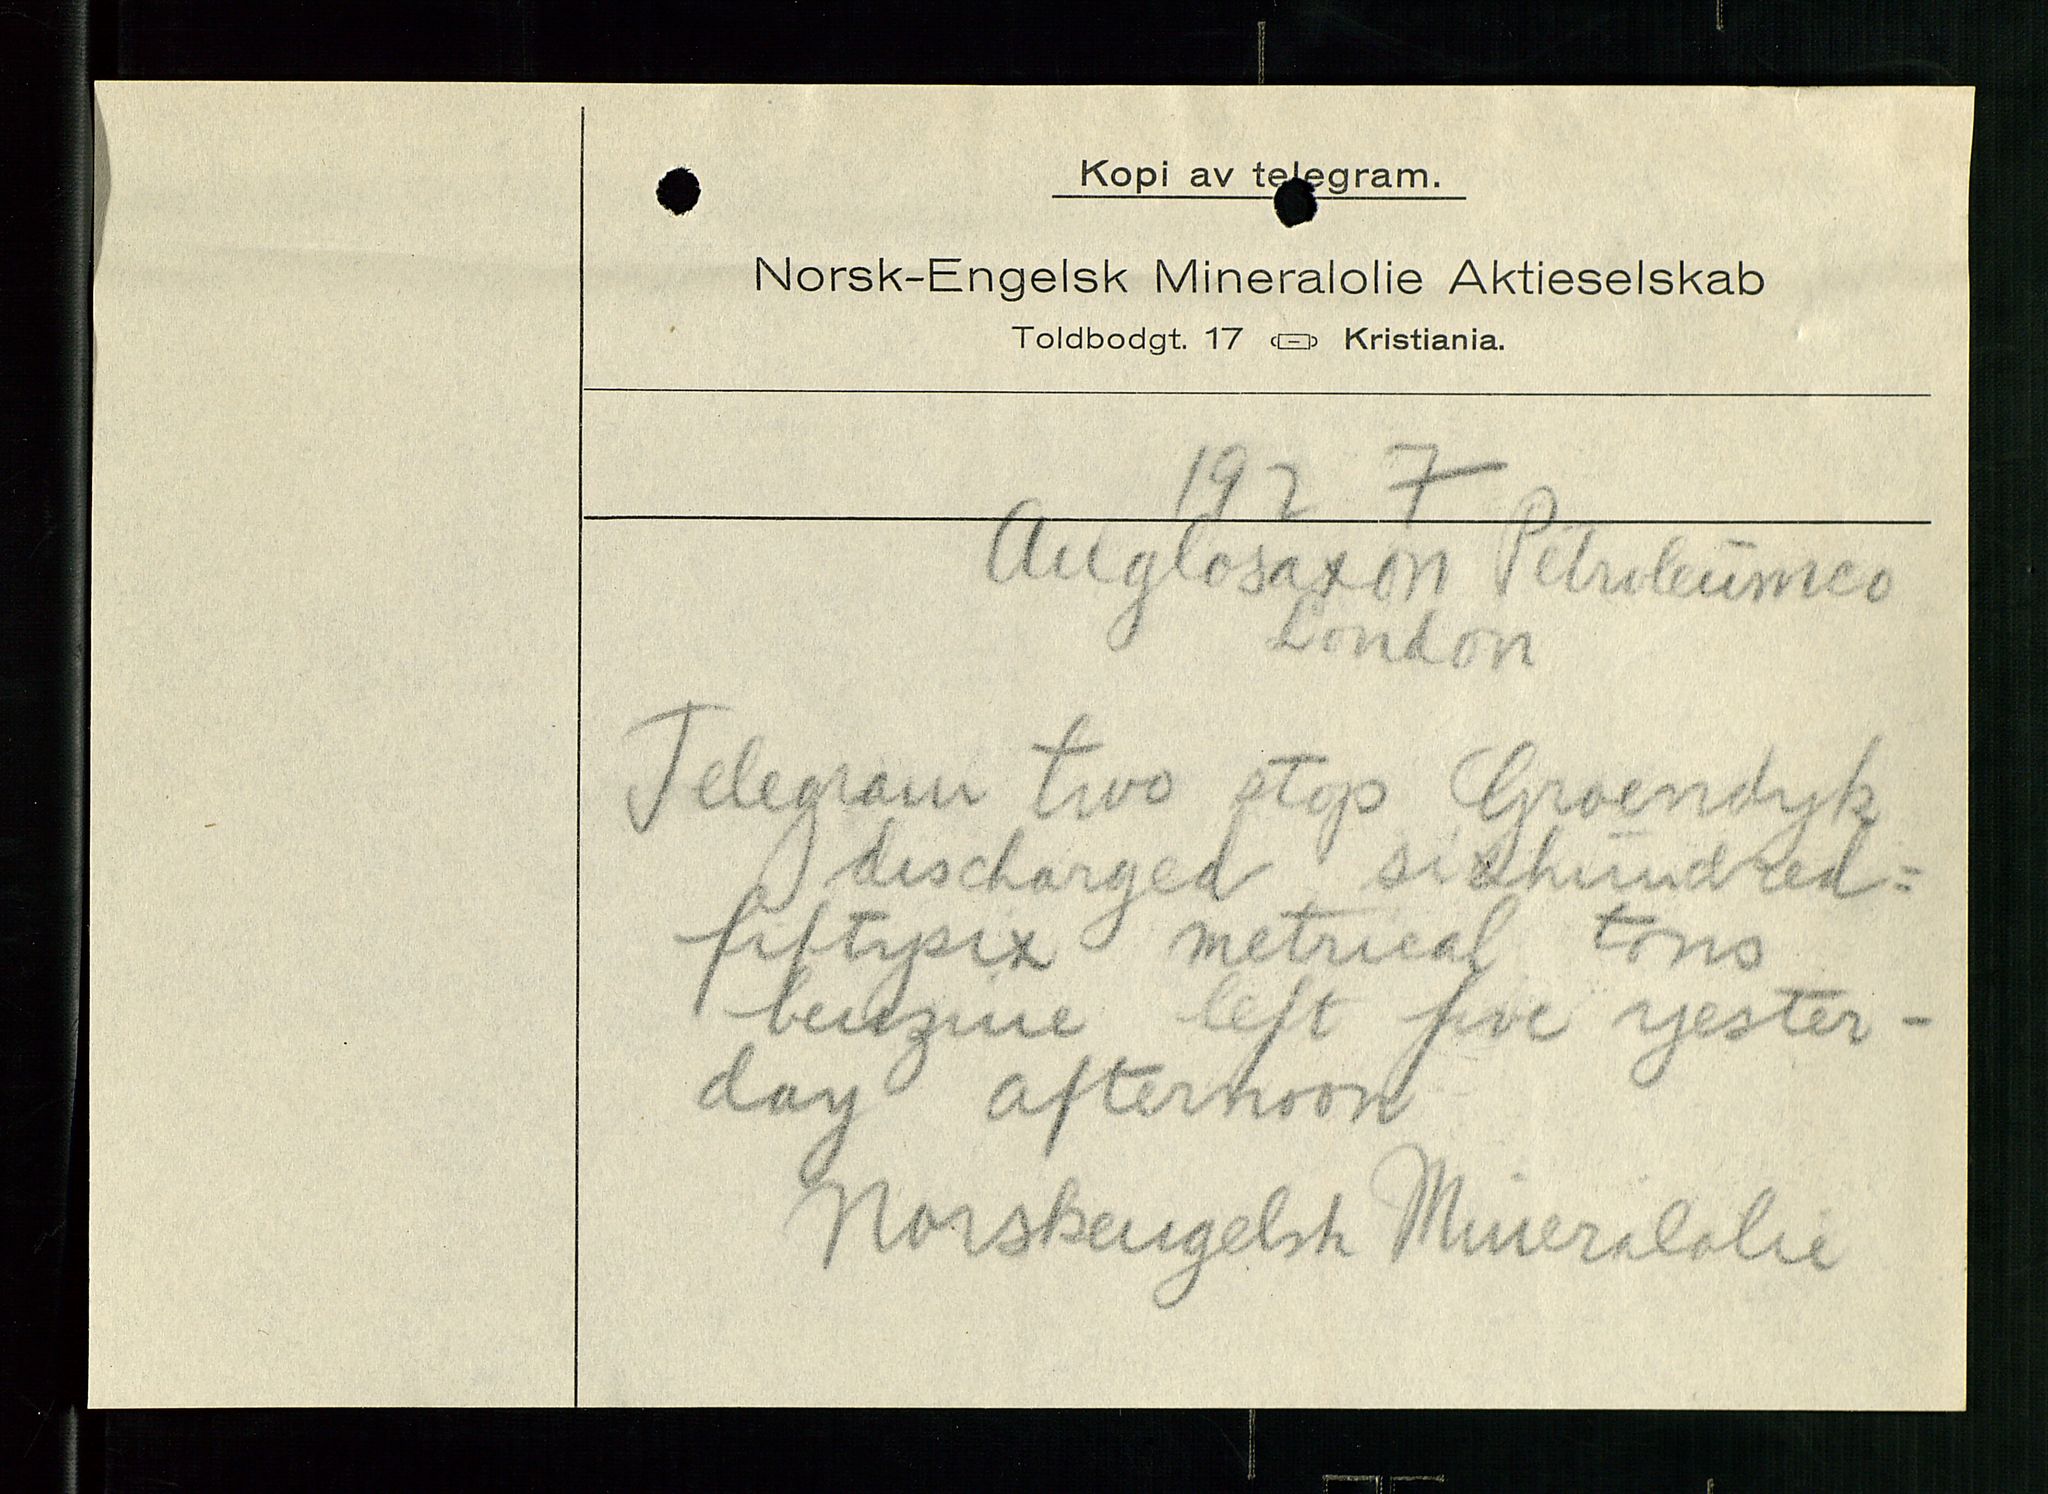 Kopi av telegram.
Norsk-Engelsk Mineralolie Aktieselskab
Toldbodgt. 17 Kristiania.
192 7
Anglosaxon Petroleumco
London
Telegram two stop Groendyk
discharged sixhundred=
fiftysix metrical tons
benzine left five yester-
day afternoon
Norskengelsk Mineralolie